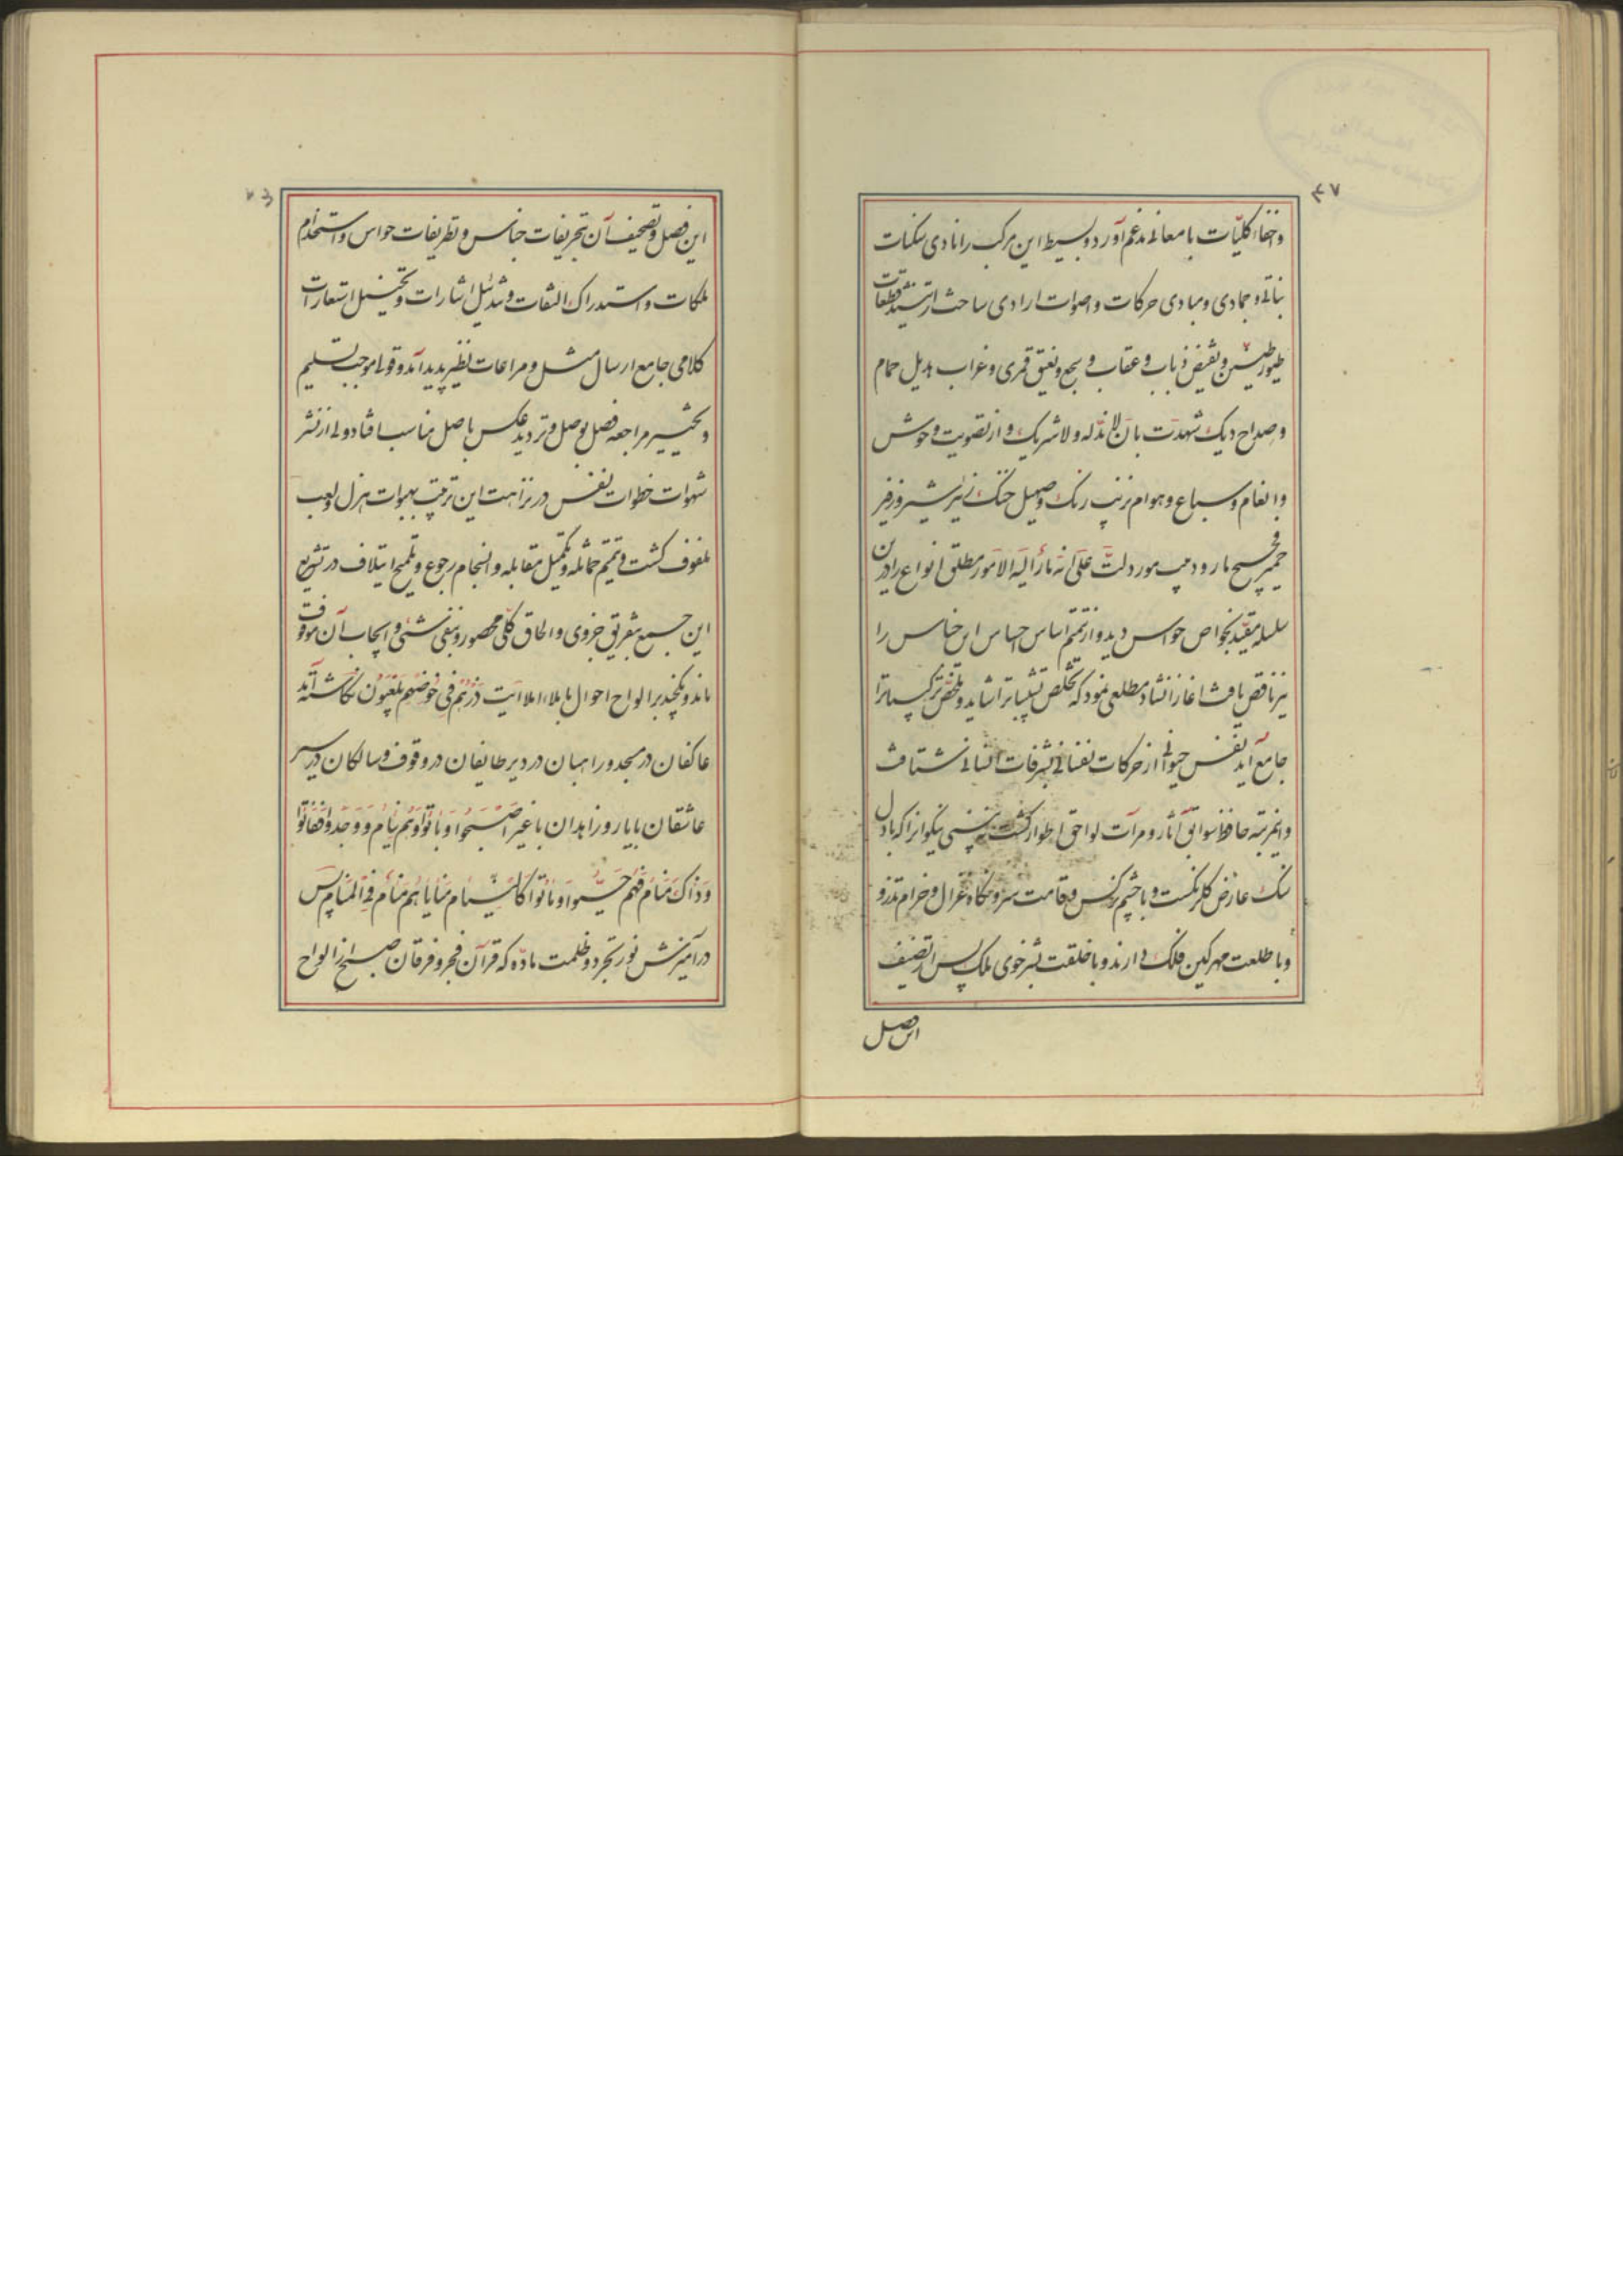 واخفاء کلیّات با معانی مدغم آورد و بسیط این مرکب را نادی سکنات
نباتی و جمادی و مبادی حرکات و اصوات ارادی ساخت از تشتید قطعات
طیور طنین و نقیض ذباب و عقاب و سجع و نغیق قمری و غراب هدیل حمام
و صداح دیک شهدت بان لا ندّ له و لا شریک و از تصویت وحوش
و انعام و سباع و هوام زنیب رنک و صهیل خنک زئیر شیر و زفیر
حمیر فحیح مار و دبیب مور دلّت علی انه ما رأ الیه الامور مطلق انواع را در این
سلسله مقیّد بخواص حواس دید و از تتمیم اساس احساس این خماس را
نیز ناقص یافت اغاز انشاد مطلعی نمود که تخلص تشبیباترا شاید و تلخّص ترکیباترا
جامع آید نفس حیوانی از حرکات نفسانی بشرفات انسانی شتافت
و اینمرتبه حافظ سوابق آثار و مرآت لواحق اطوار کشت نه بینی نیکوانرا که با دل
سنک عارض کلرنکست و با چشم نرکس و قامت سرو نکاه غزال و خرام تذرو
و با طلعت مهر کین فلک دارند و با خلقت بشر خوی ملک پس از تصنیف
این فصل
این فصل و تصحیف آن تحریفات جناس و تطریفات حواس و استخدام
ملکات و استدراک التفات و تذئیل اشارات و تخییل استعارات
کلامی جامع ارسال مثل و مراعات نظیر پدید آمد و قول موجب تسلیم
و تخییر مراجعه فصل بوصل و تردید عکس باصل مناسب افتاد ولی از نشر
شهوات خطوات نفس در نزاهت این ترتیب بهبوات هزل و لعب
ملفوف کشت و تتمیم مماثله و تکمیل مقابله و انسجام رجوع و تلمیح ایتلاف در تشریع
این جمیع بتفریق جزوی و الحاق کلّی محصور و بنفی شئی و ایجاب آن موقوف
ماند و بکنجد بر الواح احوال باملاء املا ایت ذرهم فی خوضهم یلعبون نکاشته آمد
عاکفان در مسجد و راهبان در دیر طایفان در وقوف و سالکان در سیر
عاشقان با یار و زاهدان با غیر اصبحوا و باتوا و هم نیام و وجدوا ففاتوا
و ذاک منام فهم حیّوا و ماتوا کالنیام منایاهم منام فی المنام پس
در آمیزش نور تجرد و ظلمت مادّه که قرآن فجر و فرقان صبح از الواح